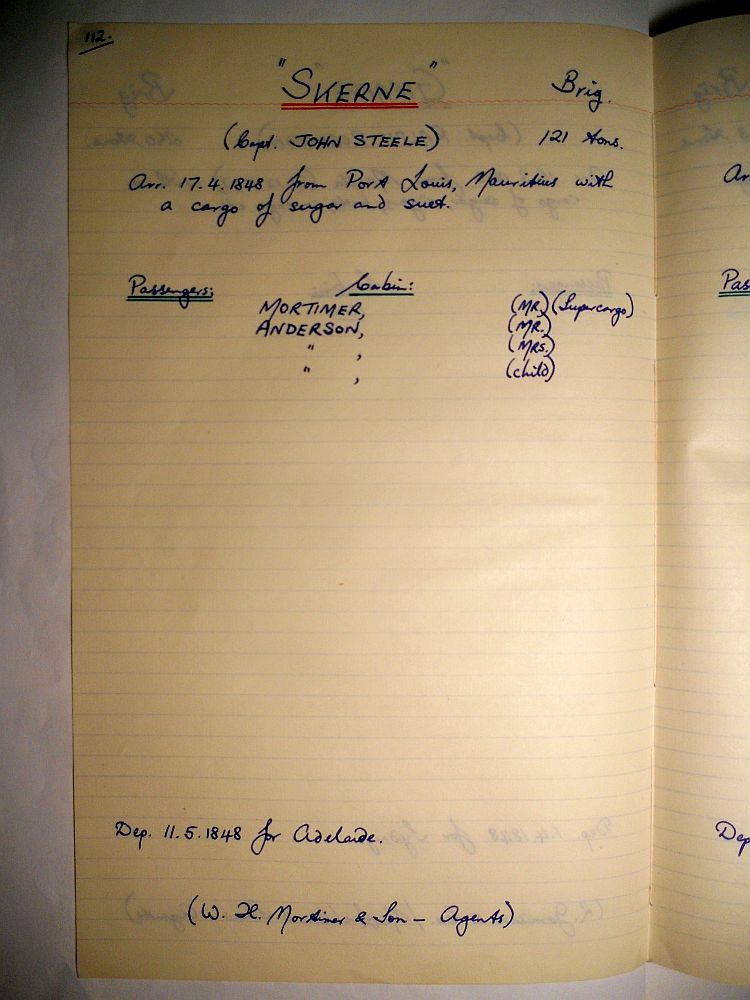 112.
"SKERNE" Brig.
(Capt. JOHN STEELE) 121 tons.
Arr. 17.4.1848 from Port Louis, Mauritius with
a cargo of sugar and suet.
Passengers: Cabin:
MORTIMER, (MR.) (Supercargo)
ANDERSON, (MR.)
" , (MRS.)
" , (child)
Dep. 11.5.1848 for Adelaide.
(W. H. Mortimer & Son - Agents)
Ar
Pas
Dep